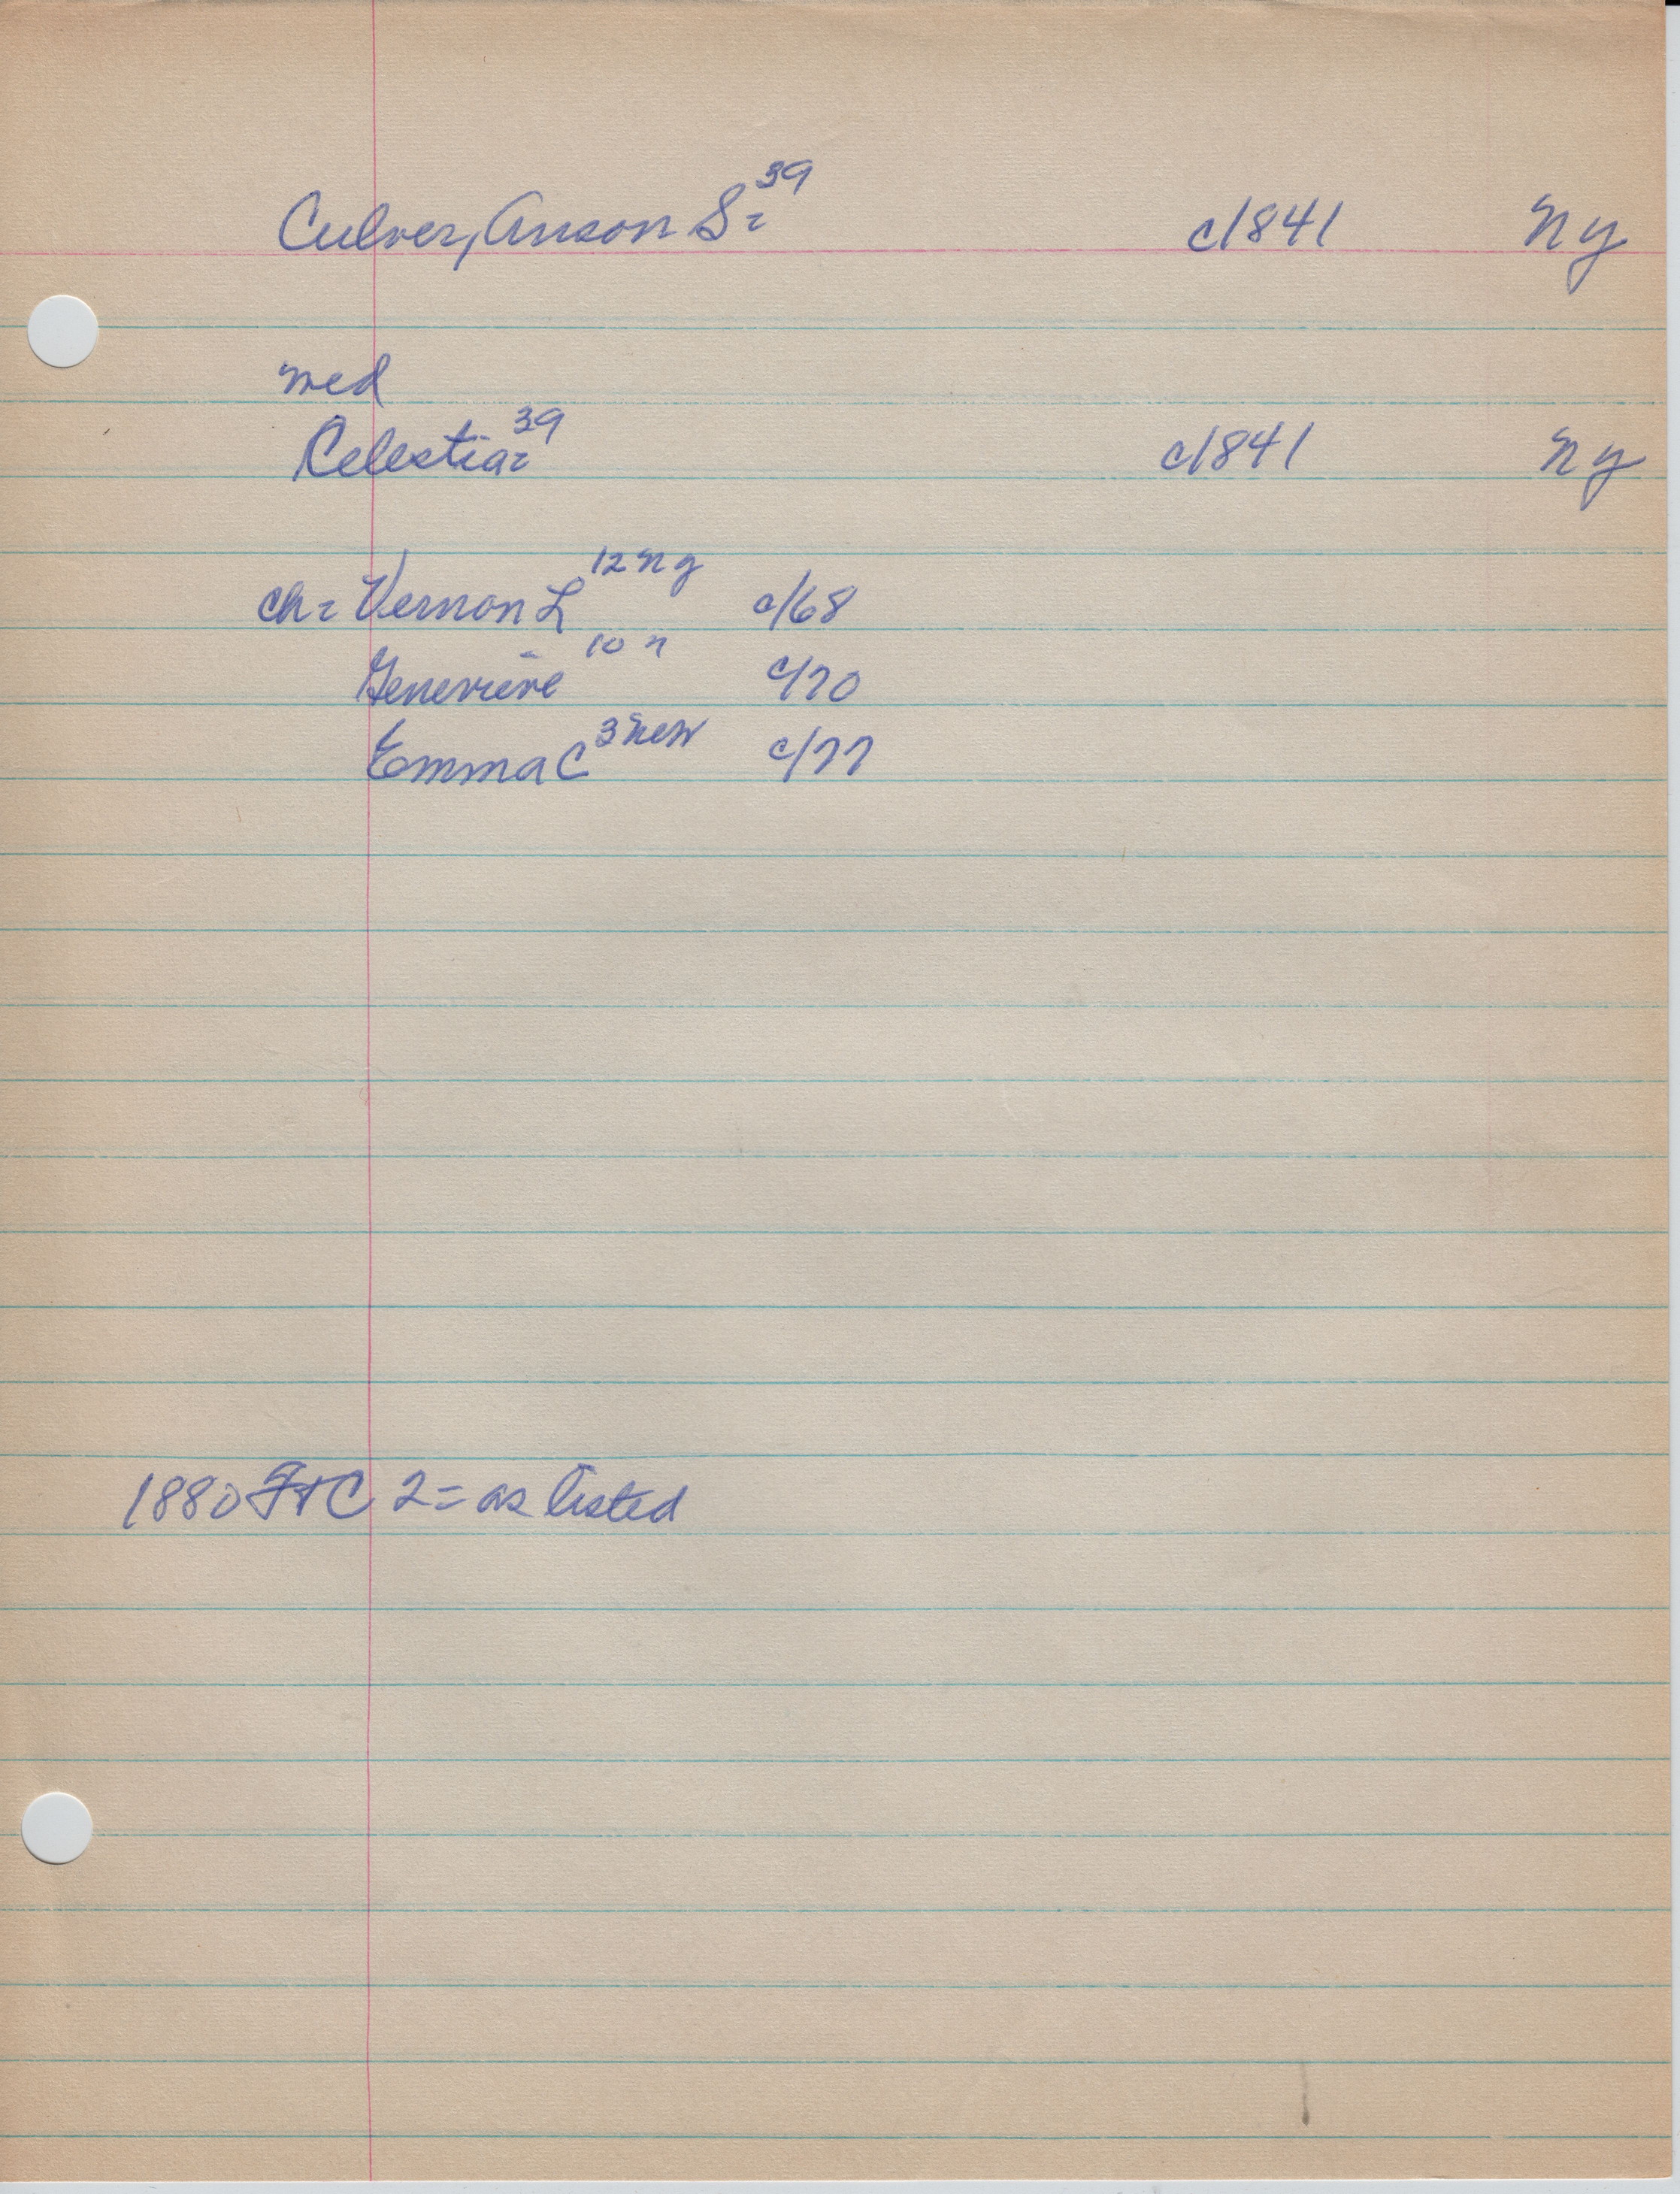 Culver, Anson S= 39 c1841 NY
med
Celestia= 39 c1841 NY
ch= Vernon L 12 NY c/68
Genevieve 10 " c/70
Emma C 3 c/77
1880 F+C 2= as listed